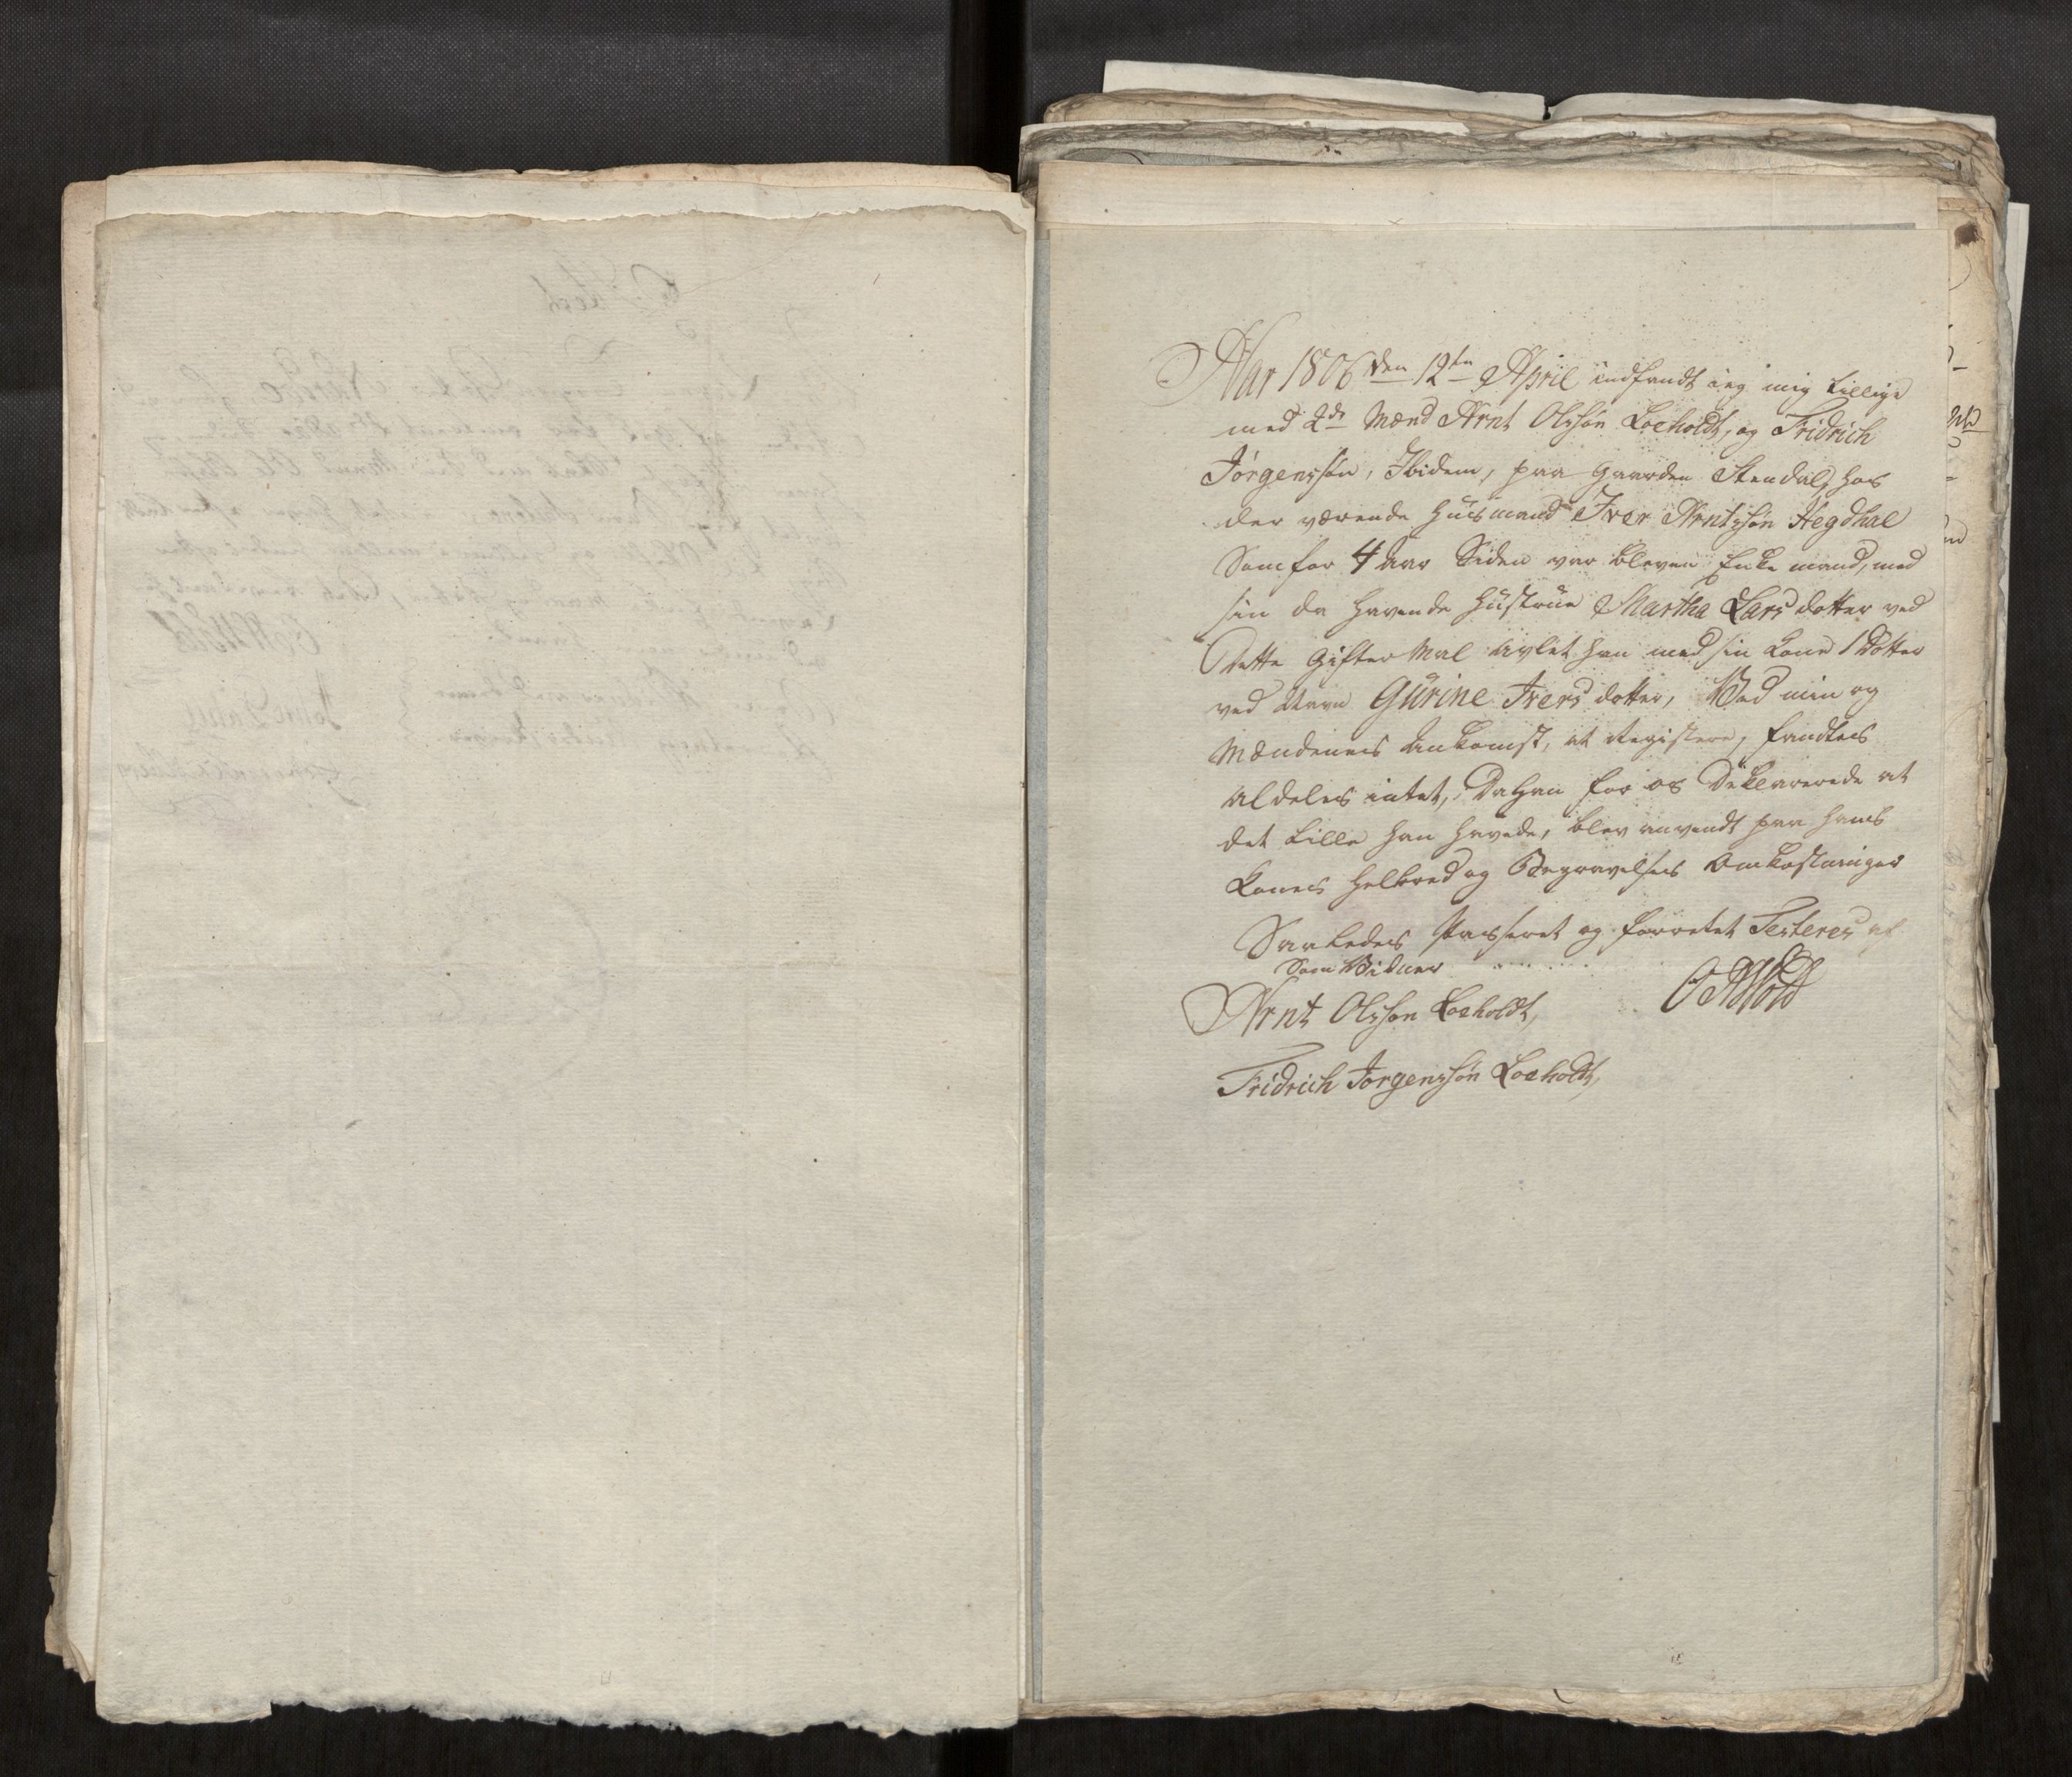 Aar 1806 den 12te April indfandt ieg mig tillige
med 2de Mænd Arnt Olssøn Loeholdt, og Fridrich
Jørgenssøn, Ibidem, paa Gaarden Stendal, hos
der værende Huusmand Iver Arntzsøn Hegdhal
Som for 4 Aar Siden var bleven Enke mand, med
sin da havende Hustrue Martha Larsdotter ved
Dette Gifter Mal avlet han med sin Kone 1 Dotter
ved Navn Gurine Ivers dotter, Ved min og
Mændenes Ankomst, at Registere, fandtes
aldeles intet, Da han for os Deklarerede at
det Lille han havde, blev anvendt paa hans
Kones Helbred og Begravelses Omkostninger
Saaledes Passeret og forrettet Testeres af
Som Vidner
Arnt Olsson Loeholdt,
Fridrich Jorgenssøn Loeholdt,